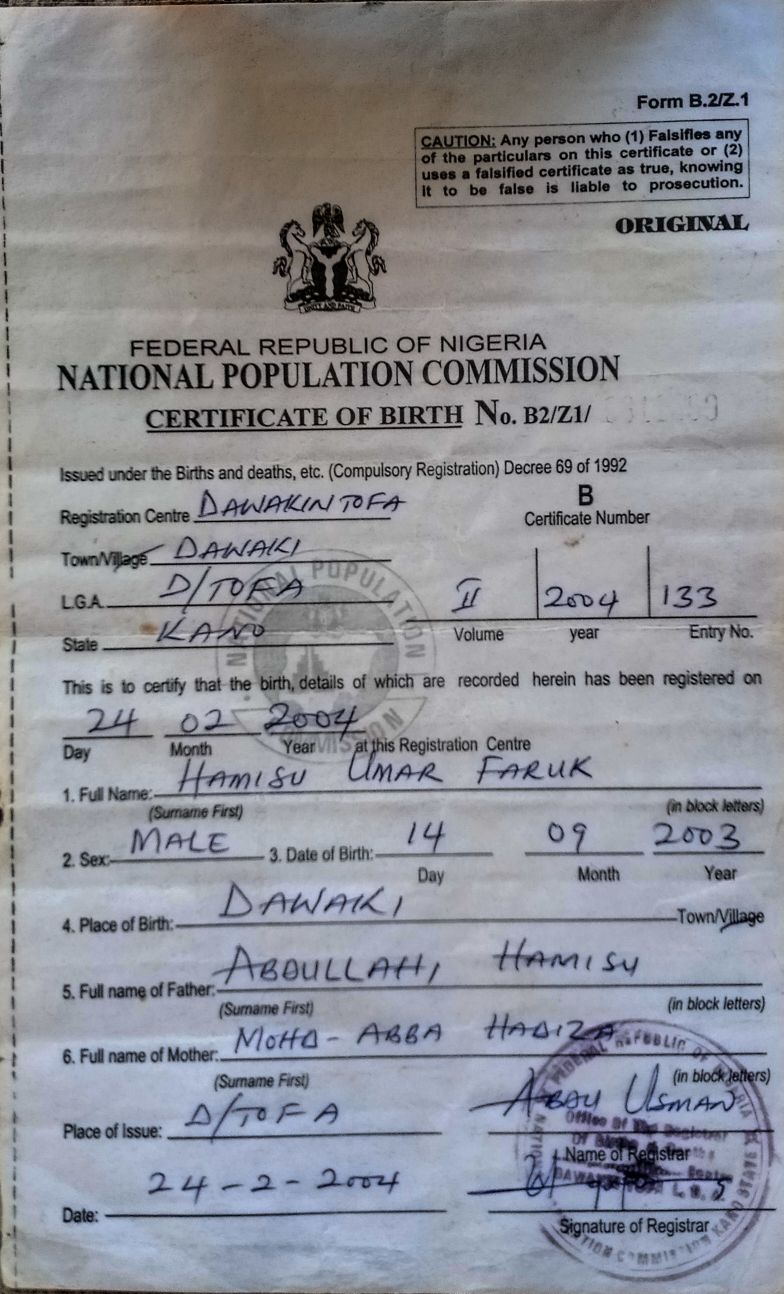 Form B.2/Z.1
CAUTION: Any person who (1) Falsifies any
of the particulars on this certificate or (2)
uses a falsified certificate as true, knowing
it to be false is liable to prosecution.
ORIGINAL
UNITY AND FAITH
FEDERAL REPUBLIC OF NIGERIA
NATIONAL POPULATION COMMISSION
CERTIFICATE OF BIRTH No. B2/Z1/
Issued under the Births and deaths, etc. (Compulsory Registration) Decree 69 of 1992
Registration Centre DAWAKIN TOFA
B
Certificate Number
Town/Village DAWAKI
L.G.A. D/TOFA
II 2004 133
State KANO
Volume year Entry No.
NATIONAL POPULATION COMMISSION
This is to certify that the birth, details of which are recorded herein has been registered on
24 02 2004
Day Month Year at this Registration Centre
1. Full Name: HAMISU UMAR FARUK
(Surname First) (in block letters)
2. Sex: MALE 3. Date of Birth: 14 09 2003
Day Month Year
4. Place of Birth: DAWAKI Town/Village
5. Full name of Father: ABDULLAHI HAMISU
(Surname First) (in block letters)
6. Full name of Mother: MOHD - ABBA HADIZA
(Surname First) (in block letters)
Place of Issue: D/TOFA
USMAN
Name of Registrar
Date: 24-2-2004
Signature of Registrar
FEDERAL REPUBLIC OF NIGERIA
Office Of The Registrar